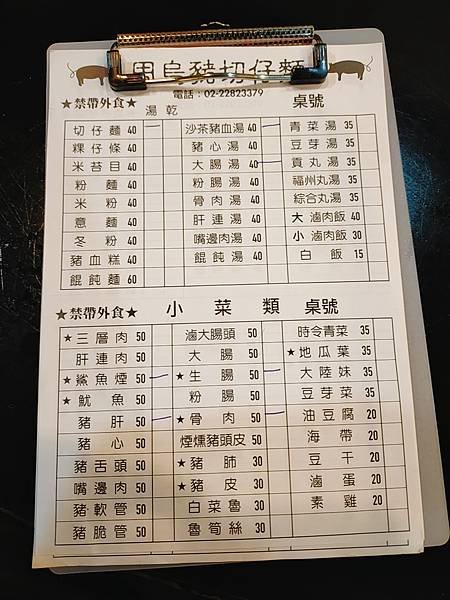 周烏豬切仔麵
電話：02-22823379
★禁帶外食★ 湯 乾 桌號
切仔麵 40 沙茶豬血湯 40 青菜湯 35
粿仔條 40 豬心湯 40 豆芽湯 35
米苔目 40 大腸湯 40 貢丸湯 35
粉麵 40 粉腸湯 40 福州丸湯 35
米粉 40 骨肉湯 40 綜合丸湯 35
意麵 40 肝連湯 40 大 滷肉飯 40
冬粉 40 嘴邊肉湯 40 小 滷肉飯 30
豬血糕 40 餛飩湯 40 白飯 15
餛飩麵 60
★禁帶外食★ 小菜類 桌號
★三層肉 50 滷大腸頭 50 時令青菜 35
肝連肉 50 大腸 50 ★地瓜葉 35
★鯊魚煙 50 ★生腸 50 大陸妹 35
★魷魚 50 粉腸 50 豆芽菜 35
豬肝 50 ★骨肉 50 油豆腐 20
豬心 50 煙燻豬頭皮 50 海帶 20
豬舌頭 50 ★豬肺 30 豆干 20
嘴邊肉 50 ★豬皮 30 滷蛋 20
豬軟管 50 白菜魯 30 素雞 20
豬脆管 50 魯筍絲 30